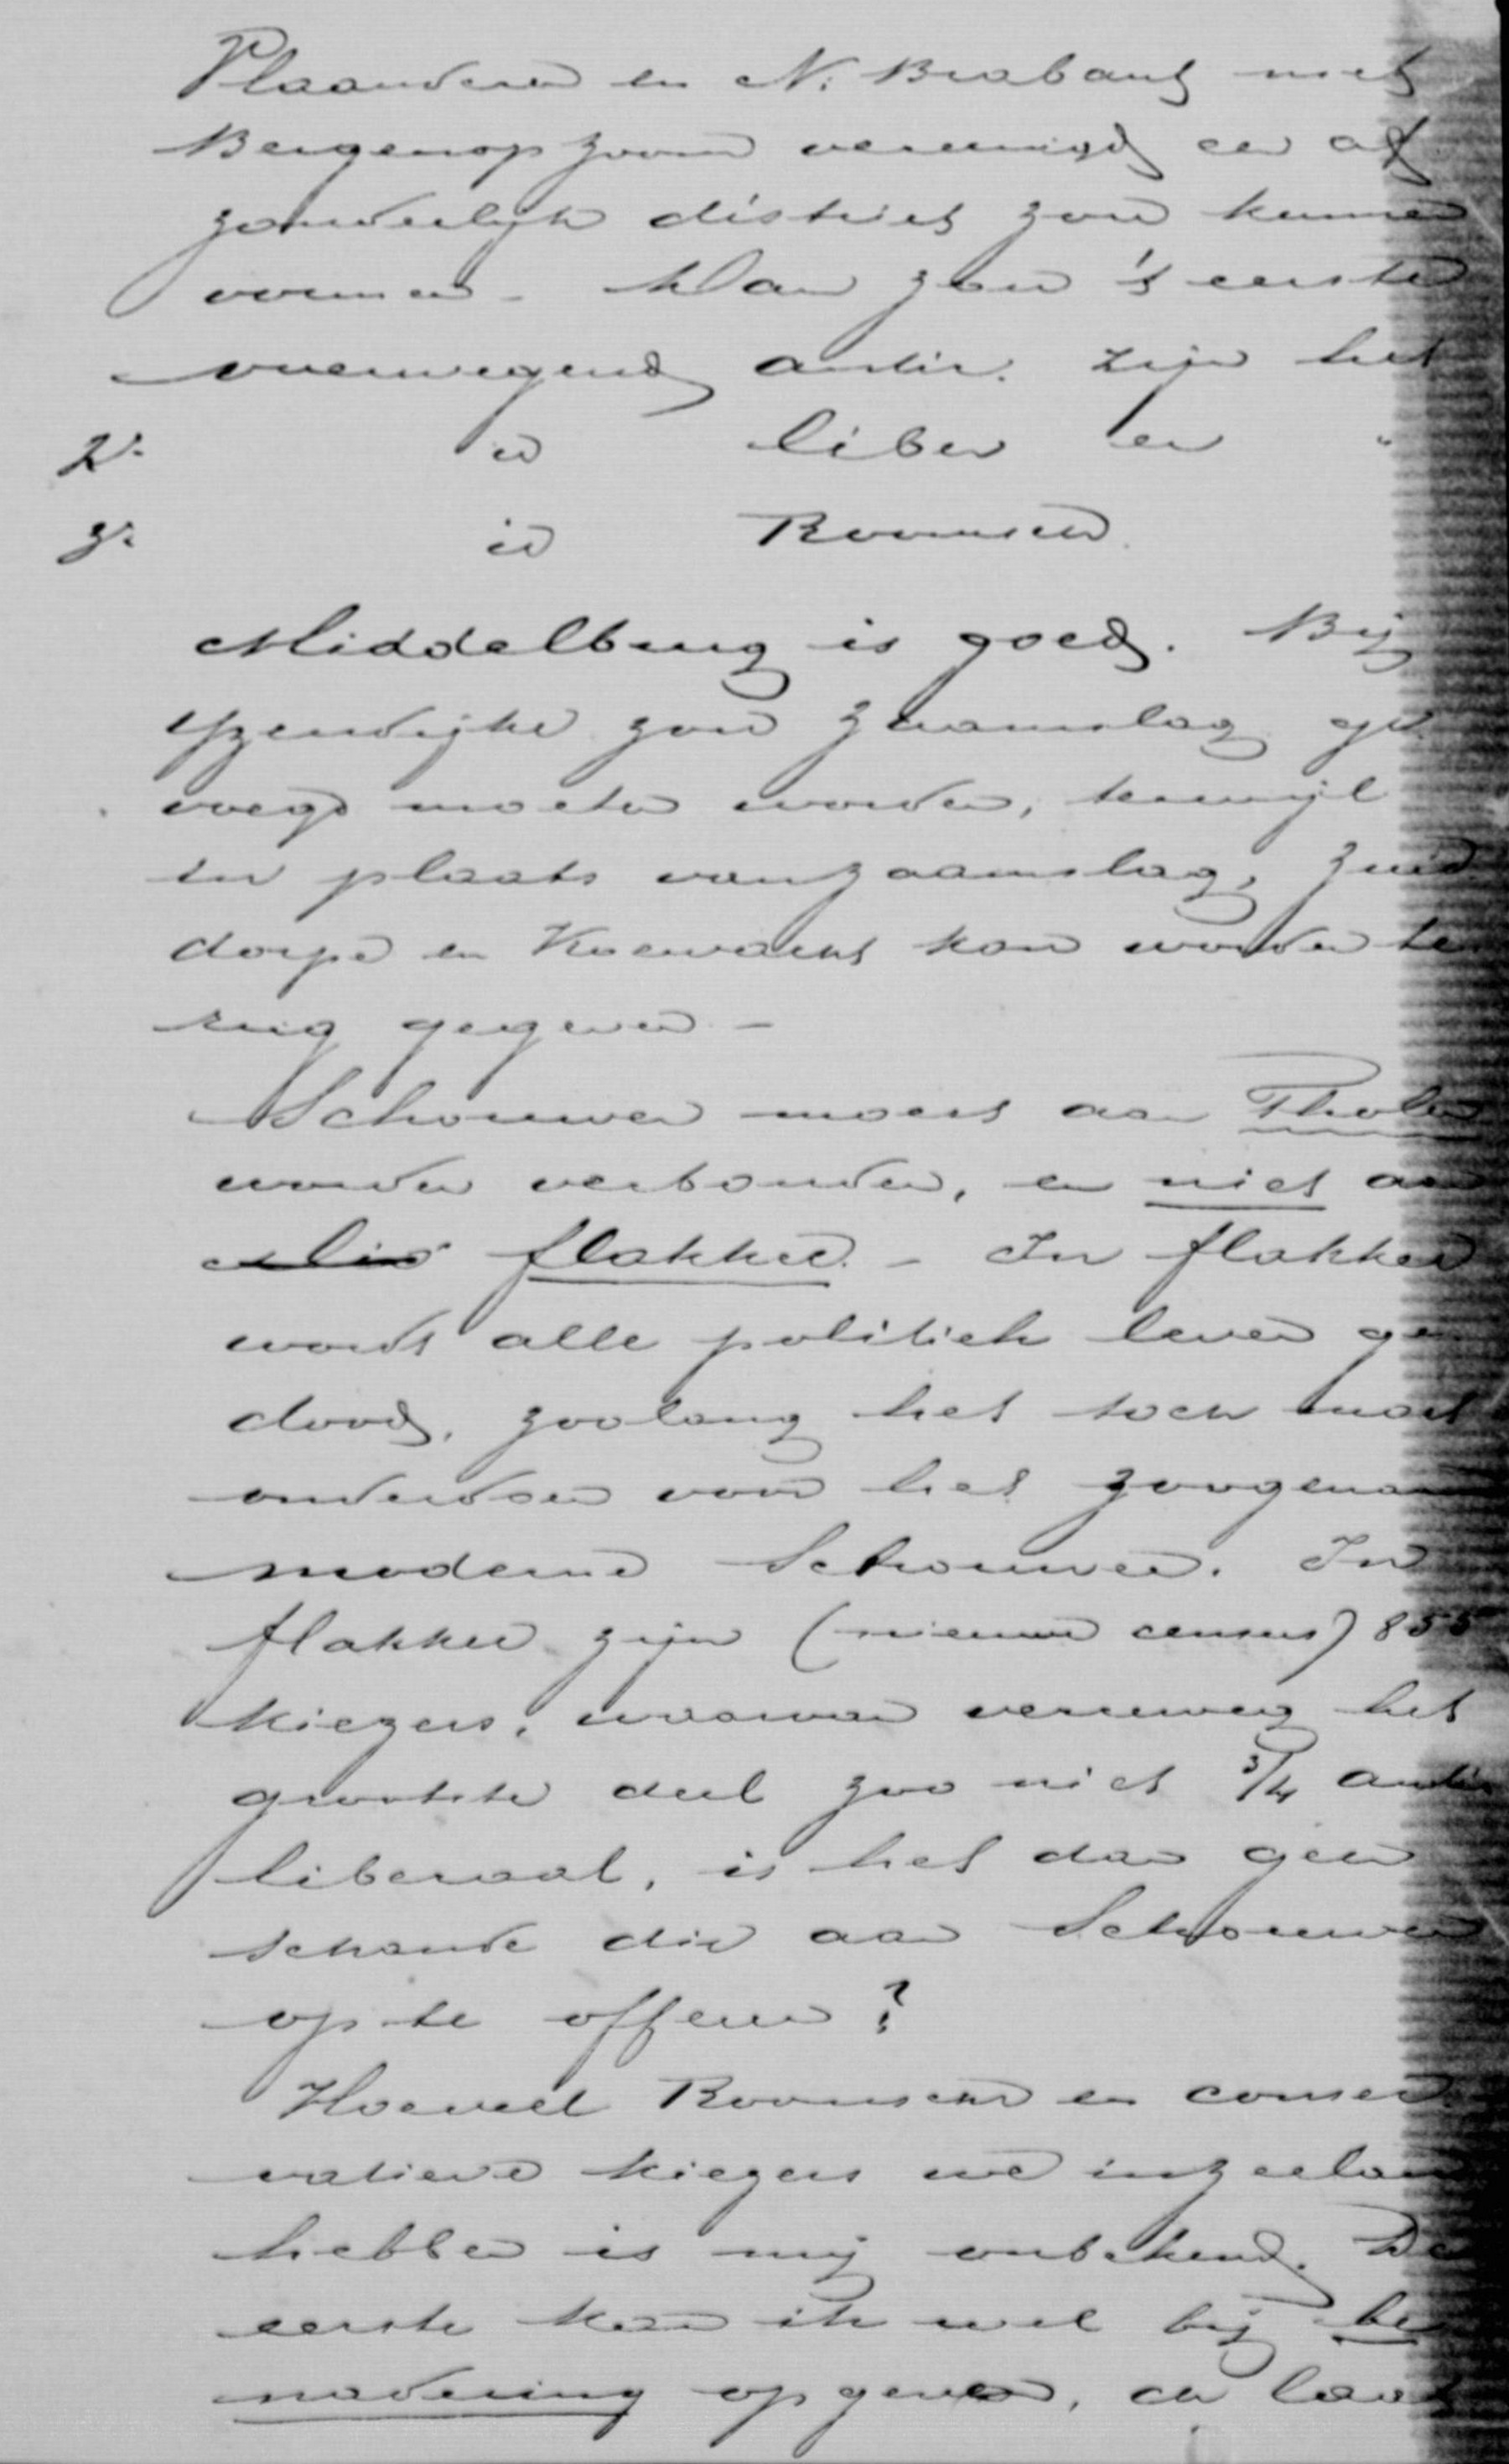 Vlaanderen en N. Brabant met
Bergenopzoom vereenigd een af
zonderlijk district zou kunnen
vormen - Dan zou 't eerste
overwegend antir. zijn het
2e id liber en "
3e id Roomsch.
Middelburg is goed. Bij
Yzendijke zou Zaamslag ge
voegd moeten worden, terwijl
in plaats van Zaamslag, Zuid
dorpe en Koewacht kon worden te
rug gegeven -
Schouwen moest aan Tholen
worden verbonden, en niet aan
flakkee. - In flakkee
wordt alle politiek leven ge
dood, zoolang het toch moet
onderdoen voor het zoogenaamd
moderne Schouwen. In
flakkee zijn (nieuwe census) 855
kiezers, waarvan verreweg het
grootste deel zoo niet 3/4 anti
liberaal, is het dan geen
schande die aan Schouwen
op te offeren?
Hoeveel Roomsche en conser
vatieve kiezers we in Zeeland
hebben is mij onbekend. De
eerste kan ik wel bij be
nadering opgeven, de laat